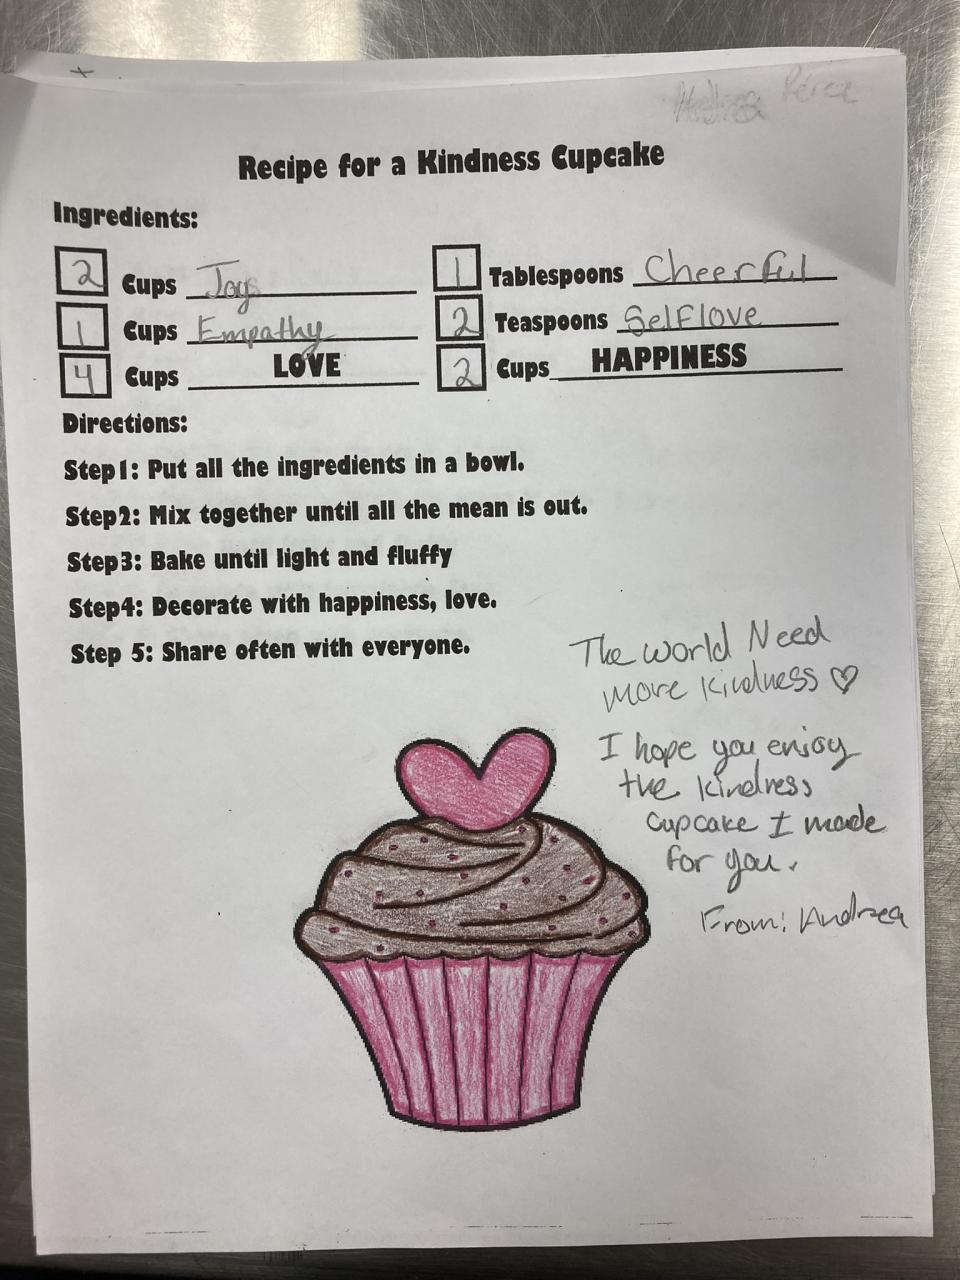 Andrea Pérez
Recipe for a Kindness Cupcake
Ingredients:
2 Cups Joy
1 Cups Empathy
4 Cups LOVE
1 Tablespoons Cheerful
2 Teaspoons Selflove
2 Cups HAPPINESS
Directions:
Step1: Put all the ingredients in a bowl.
Step2: Mix together until all the mean is out.
Step3: Bake until light and fluffy
Step4: Decorate with happiness, love.
Step 5: Share often with everyone.
The world Need
more kindness ♡
I hope you enjoy
the kindness
cupcake I made
for you.
From: Andrea